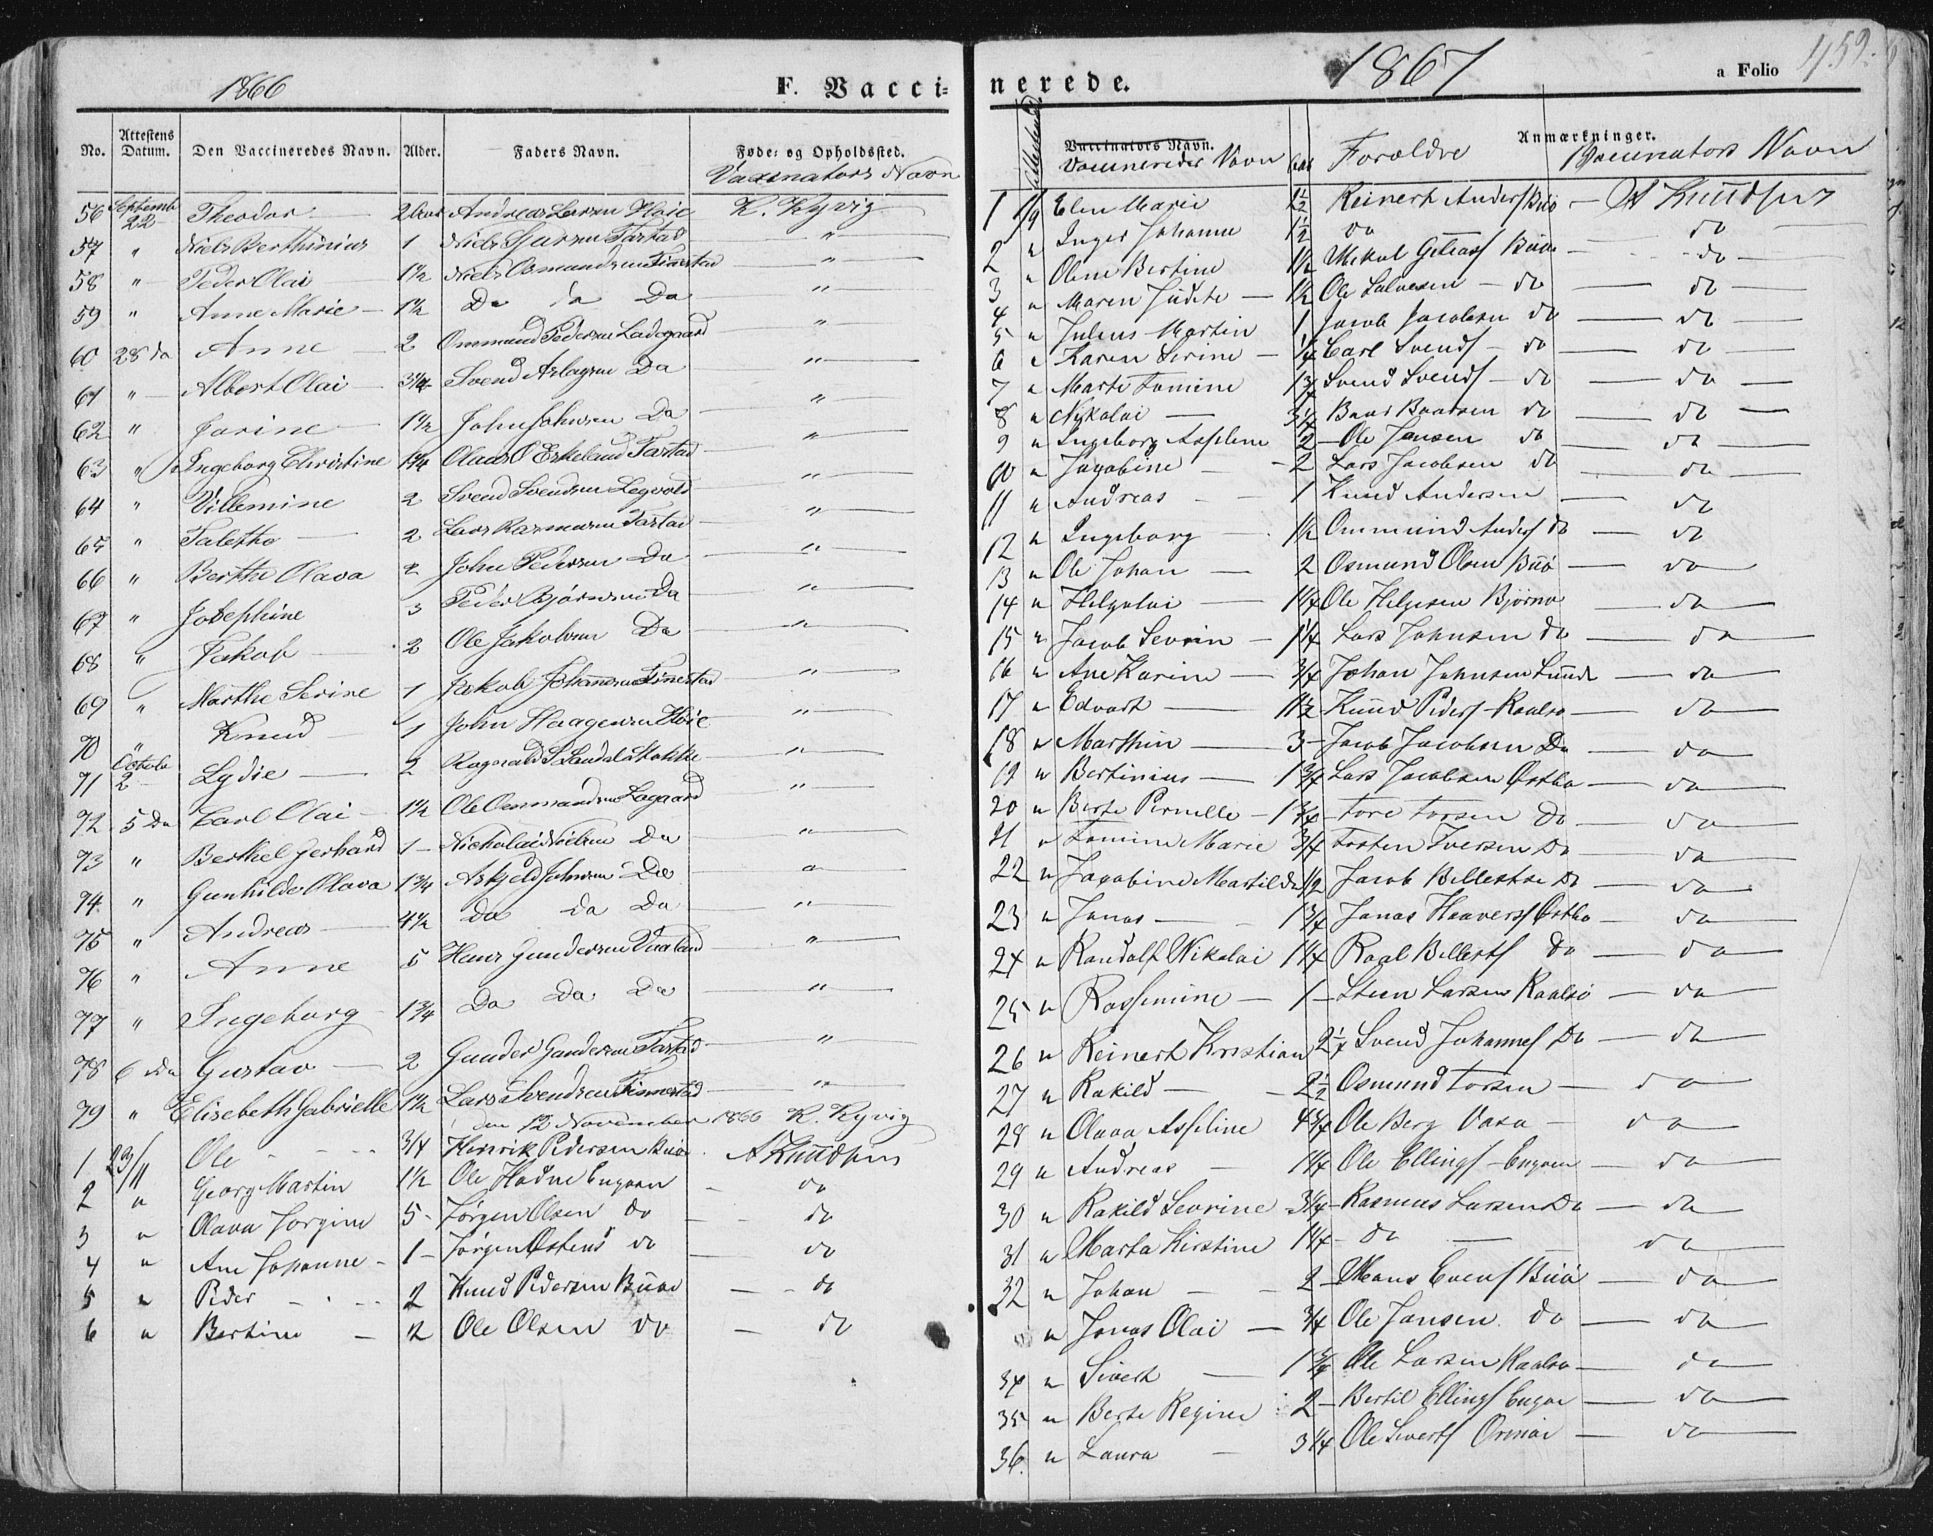 1866
F. Vacci-
No. Attestens Datum. Den Vaccineredes Navn. Alder. Faders Navn. Føde- og Opholdssted.
Vaxinators Navn
56 Septemb 22 Theodor 2 Aar Andreas Larsen Høie K. Kyvig
57 " Niels Berthinius 1 Niels Tastad "
58 " Peder Olai 1½ Niels Osmundsen Finestad "
59 " Anne Marie 1½ Do do Do "
60 28 do Anne 2 Ommund Pedersen Ladegaard "
61 " Albert Olai 3¼ Svend Aslagsen Do "
62 " Jorine 1½ John Johnsen Do "
63 " Ingeborg Christine 1¼ Olaus O Erkeland Tastad "
64 " Villemine 2 Svend Svendsen "
65 " Taletho 2 Lars Rasmusen Tastad "
66 " Berthe Olava 2 John Pedersen Do "
67 " Josephine 3 Peder Bjørnsen Do "
68 " Jakob 2 Ole Jakobsen Do "
69 " Marthe Serine 1 Jakob Johannesen Finestad "
70 " Knud 1 John Haagensen Høie "
71 Octobr 2 Lydie 2 Ragnald S Sandal Stokke "
72 5 Do Carl Olai 1½ Ole Ommundsen Lagaard "
73 " Berthel Gerhard 1 Nicholai Nielsen Do "
74 " Gunhilde Olava 1¾ Askjeld Johnsen Do "
75 " Andreas 4½ Do do Do "
76 " Anne 5 Hans Gundersen Vaaland "
77 " Ingeborg 1¾ Do Do Do "
78 6 do Gustav 2 Gunder Gundersen Tastad "
79 " Elisebeth Gabrielle 1½ Lars Svendsen Finnestad "
den 12 November 1866 K. Kyvig
1 23/11 Ole ¾ Henrik Pedersen Buø A Knudsen
2 " Georg Martin 1½ Ole Hodne Engøen do
3 " Olava Jorgine 5 Jørgen Olsen do do
4 " Ane Johanne 1 Jørgen Østens do do
5 " Peder 2 Knud Pedersen Buøe do
6 " Bertine 2 Ole Olsen do do
nerede.
1867
a Folio 459.
Vaccinators Navn. Anmærkninger.
Vaccineredes Navn Forældre Vaccinators Navn
1 1/9 Elen Marie 1½ Reinert Anders Buø A Knudsen
2 " Inger Johanne 1½ do do
3 " Olene Bertine 1½ Mikal Buøe do
4 " Maren Judite 1½ Ole Salvesen do do
5 " Julius Martin 1 Jacob Jacobsen do do
6 " Karen Serine ¼ Carl Svends do do
7 " Marte Tomine 1¾ Svend Svends do do
8 " Nikolai 3¼ Baar Baarsen do do
9 " Ingeborg Asseline 2 Ole Jansen do do
10 " Jacobine 2 Lars Jacobsen do do
11 " Andreas 1 Knud Andersen do
12 " Ingeborg 1½ Ommund Anders do do
13 " Ole Johan 2 Osmund Olsen Buø do
14 " Helgolai 1¼ Ole Helgesen Bjørnø do
15 " Jacob Sevrin 1¼ Lars Johnsen do do
16 " Ane Karine ¾ Johan Johnsen Sunde do
17 " Edvart 1½ Knud Peders Roalsø do
18 " Marthin 3 Jacob Jacobsen Do do
19 " Bertinius 1¾ Lars Jacobsen Østbø do
20 " Berte Pernelle 1¾ Tore Torsen Do do
21 " Tomine Marie ¾ Tosten Iversen Do do
22 " Jacobine Matilde ½ Jacob Do do
23 " Jonas 1¾ Jonas Haavers Østbø do
24 " Randolf Nikolai 1¼ Roal do do
25 " Rossemine 1 Steen Larsen Roalsø do
26 " Reinert Kristian 2¼ Svend Johannes Do do
27 " Rakild 2½ Osmund Torsen do
28 " Olava Asseline 4¾ Ole Berg do
29 " Andreas 1¼ Ole Ellings Engøen do
30 " Rakild Sevrine 3¼ Rasmus Larsen Do do
31 " Marta Kirstine 1¼ do do
32 " Johan 2 Mons Evens Buø do
" Jonas Olai ¾ Ole Jansen do do
34 " Sivert 1¾ Ole Larsen Roalsø do
35 " Berte Regine 2 Bertil Ellings Engøe do
36. " Laura 3¼ Ole Siverts Ormøe do